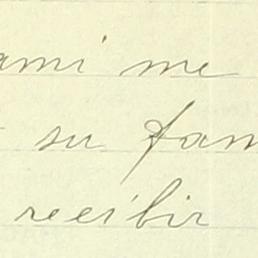 ami me
su fam
recibir